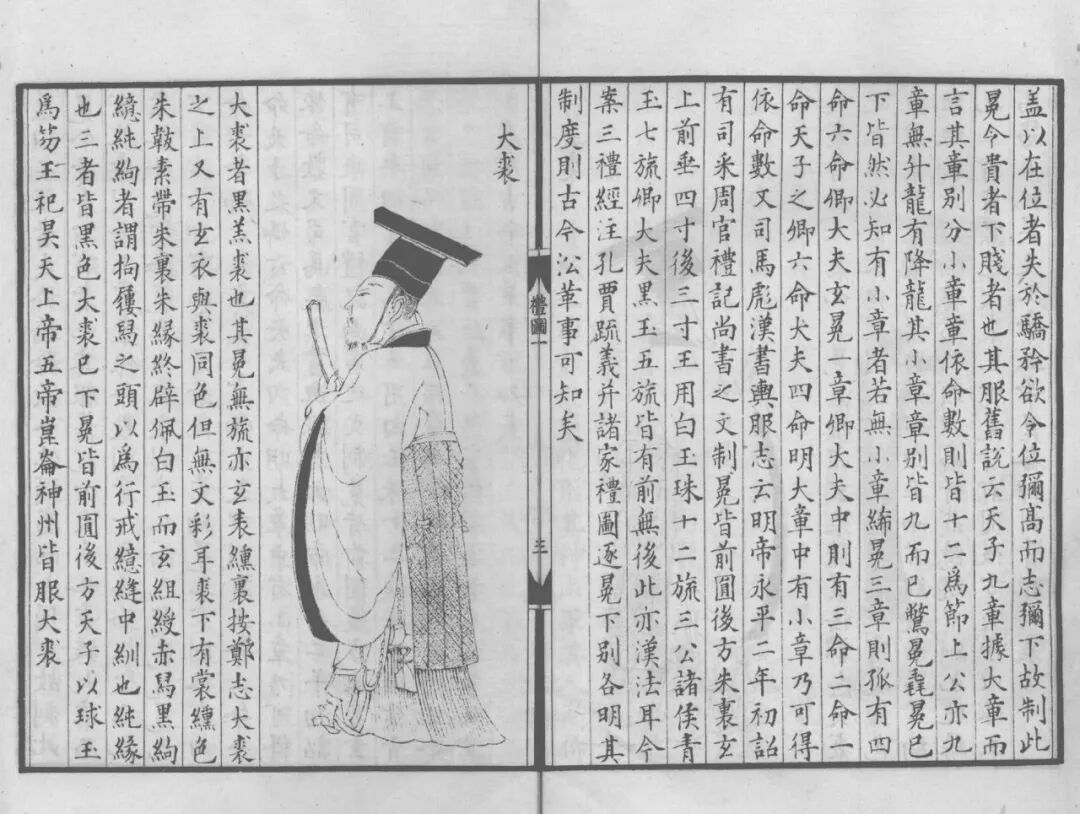 盖以在位者失於驕矜欲令位彌髙而志彌下故制此
冕今貴者下賤者也其服舊說云天子九章據大章而
言其章別分小章章依命數則皆十二爲節上公亦九
章無升龍有降龍其小章章別皆九而已鷩冕毳冕已
下皆然必知有小章者若無小章絺冕三章則孤有四
命六命卿大夫玄冕一章卿大夫中則有三命二命一
命天子之卿六命大夫四命明大章中有小章乃可得
依命數又司馬彪漢書輿服志云明帝永平二年初詔
有司采周官禮記尚書之文制冕皆前圓後方朱裏玄
上前垂四寸後三寸王用白玉珠十二旒三公諸侯青
玉七旒卿大夫黑玉五旒皆有前無後此亦漢法耳今
案三禮經注孔賈疏義并諸家禮圖逐冕下別各明其
制度則古今沿革事可知矣
禮圖一
三
大裘
大裘者黑羔裘也其冕無旒亦玄表纁裏按鄭志大裘
之上又有玄衣與裘同色但無文彩耳裘下有裳纁色
朱韍素帶朱裏朱緣終辟佩白玉而玄組綬赤舄黑絇
繶純絇者謂拘屨舄之頭以爲行戒繶縫中紃也純緣
也三者皆黑色大裘已下冕皆前圓後方天子以球玉
爲笏王祀昊天上帝五帝崑崙神州皆服大裘